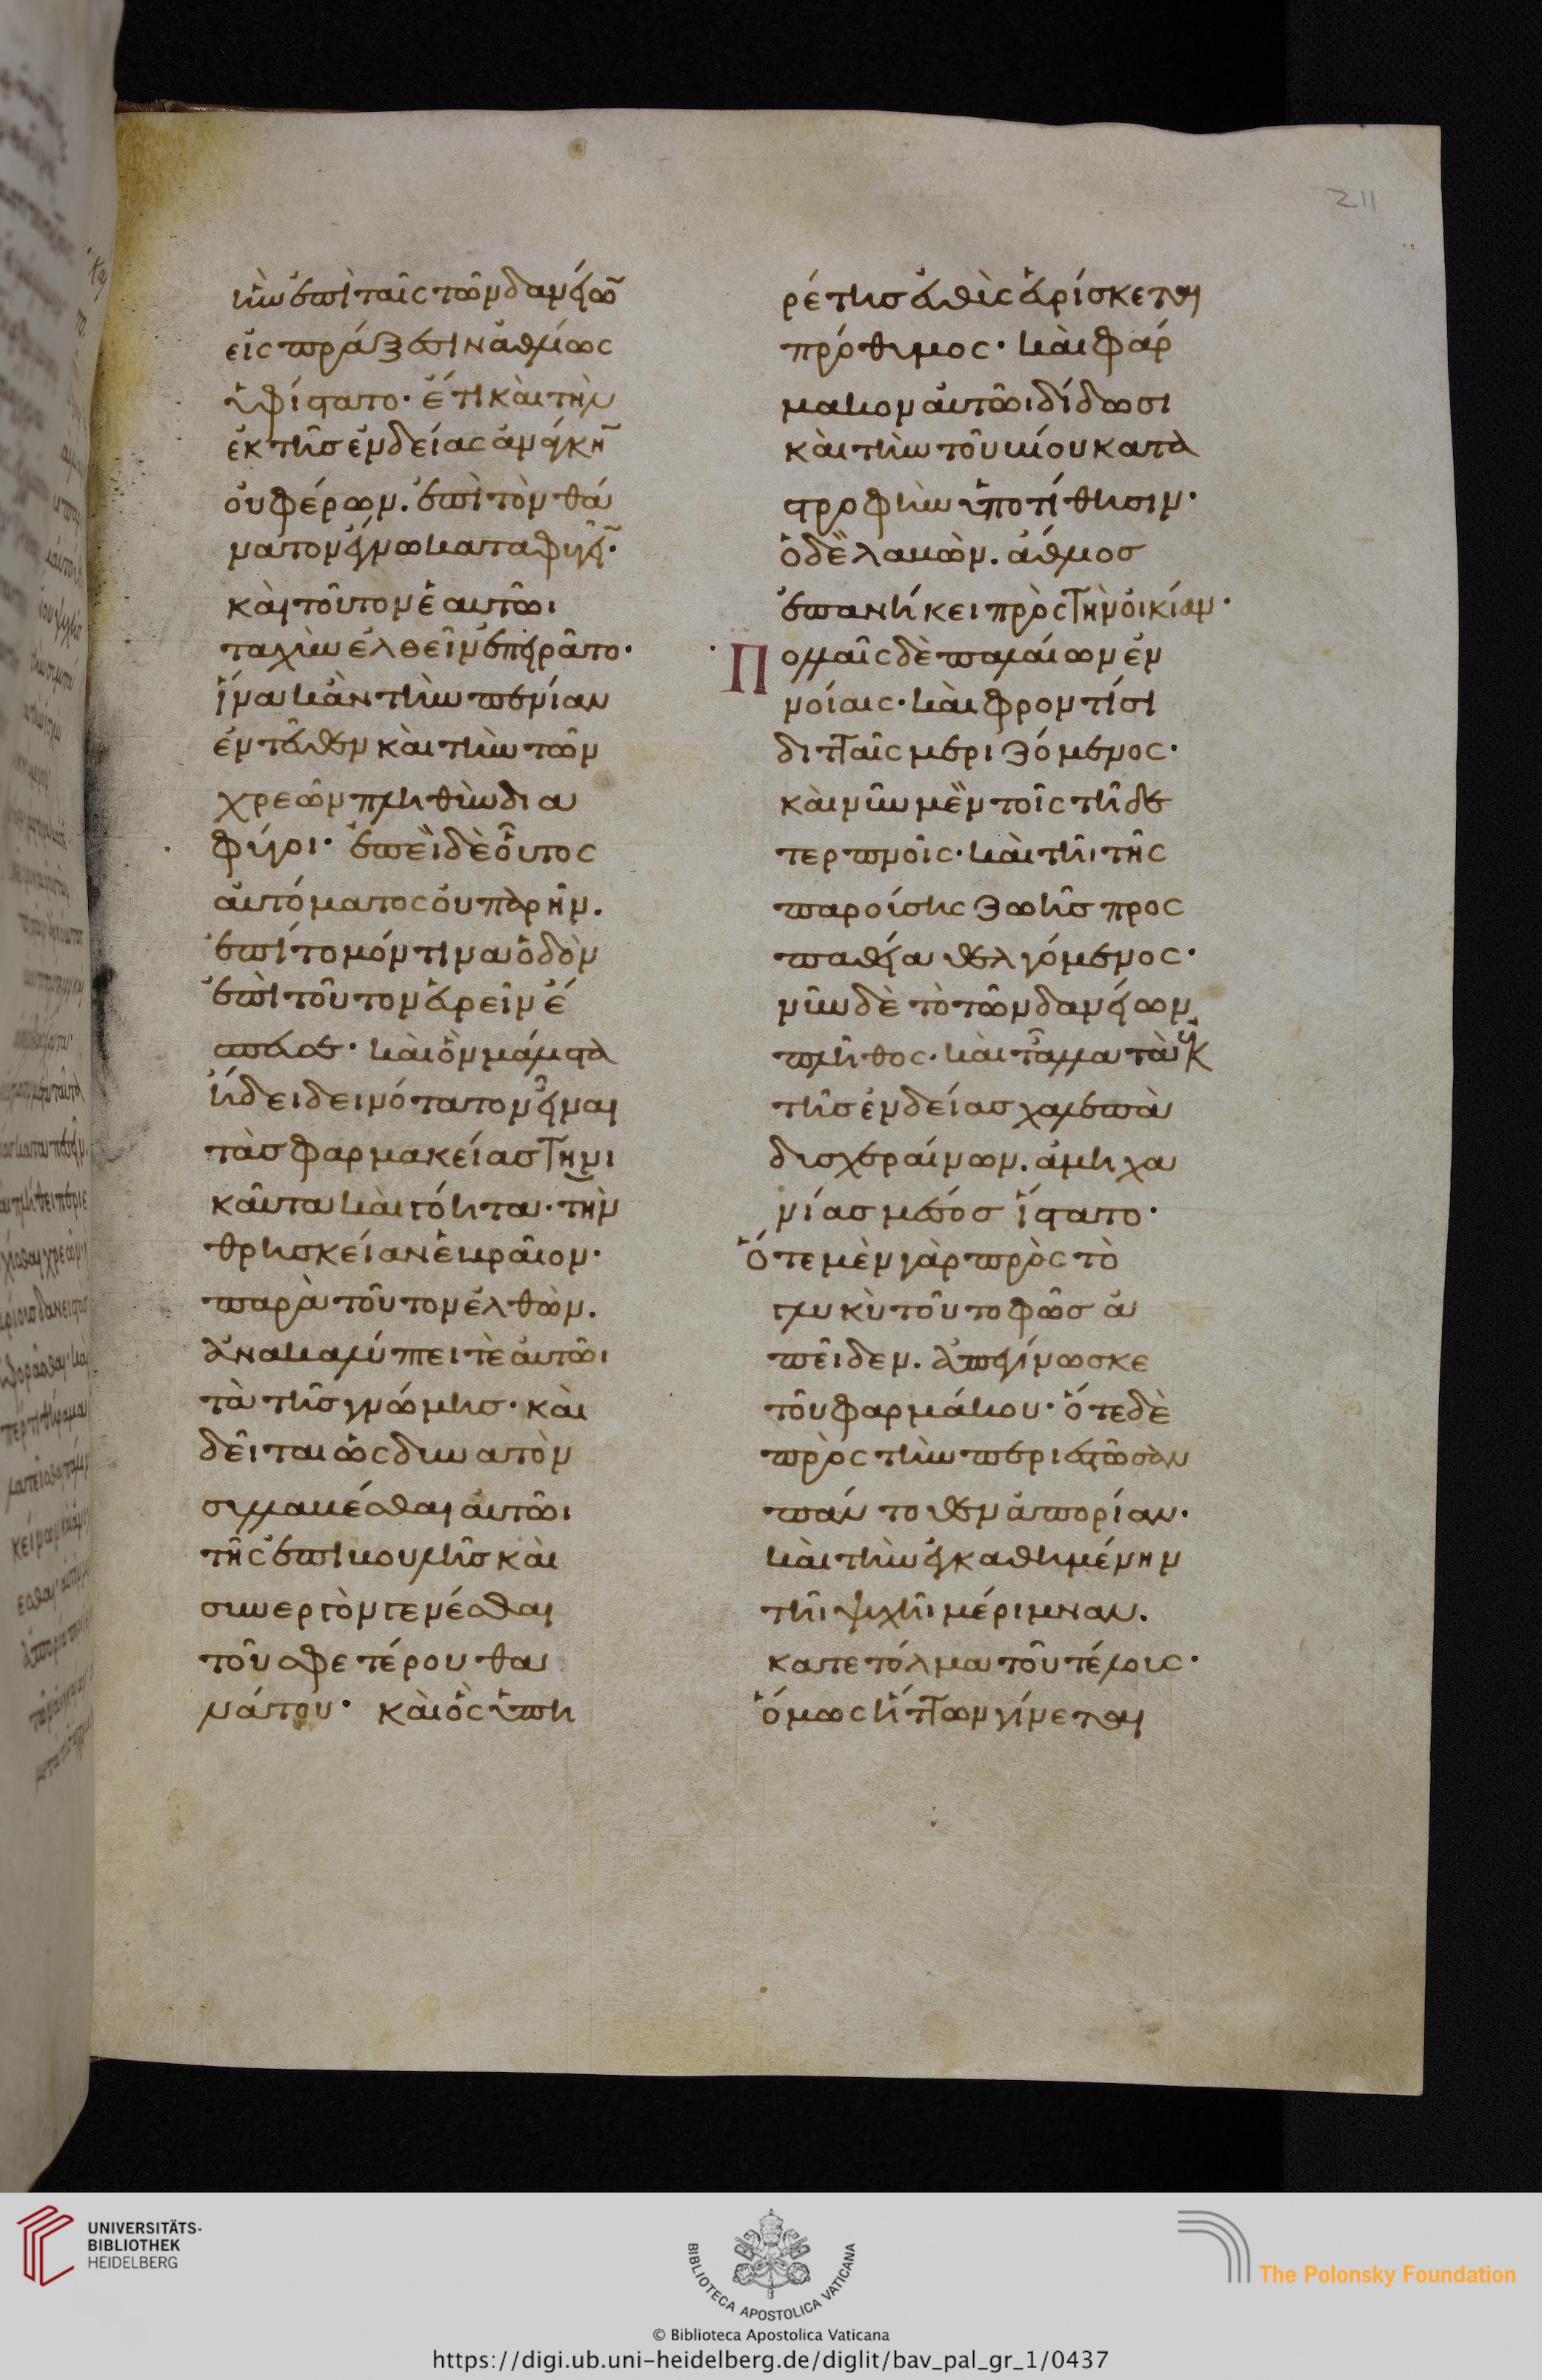 211
κὴν ἐπὶ ταῖς τῶν δανείω̃
εἰς πράξεσιν εὐθύμως
ὑφίστατο· ἔτι καὶ τὴν
ἐκ τῆς ἐνδείας ἀνάγκη̃
οὐ φέρων. ἐπὶ τὸν θά
νατον ἔγνω καταφυγεῖ̃·
καὶ τοῦτον ἑαυτῶι
ταχὺν ἐλθεῖν ἐπειρᾶτο·
ἵνα κἂν τὴν πενίαν
ἐντεῦθεν καὶ τὴν τῶν
χρεῶν πληθὺν δια
φύγοι· ἐπεὶ δὲ οὗτος
αὐτόματος οὐ παρῆν.
ἐπίτομόν τινα ὁδὸν
ἐπὶ τοῦτον εὑρεῖν ἔ
σπευσε· καὶ ὃν μάλιστα
ἤδει δεινότατον εἶναι
τὰς φαρμακείας τηνι
καῦτα καὶ γόητα· τὴν
θρησκείαν ἑβραῖον·
παρὰ τοῦτον ἐλθὼν.
ἀνακαλύπτει τὲ αὐτῶι
τὰ τῆς γνώμης· καὶ
δεῖται ὡς δυνατὸν
συλλαβέσθαι αὐτῶι
τῆς ἐπιβουλῆς καὶ
συνεργὸν γενέσθαι
τοῦ σφετέρου θα
νάτου· καὶ ὃς ὑπη
ρέτης εὐθὺς εὑρίσκεται
πρόθυμος· καὶ φάρ
μακον αὐτῶι δίδωσι
καὶ τὴν τοῦ βίου κατα
στροφὴν ὑποτίθησιν·
ὁ δὲ λαβὼν. εὔθυμος
ἐπανήκει πρὸς τὴν οἰκίαν·
Πολλαῖς δὲ παλαίων ἐν
νοίαις· καὶ φροντίσι
διτταῖς μεριζόμενος·
καὶ νῦν μὲν τοῖς τῆιδε
τερπνοῖς· καὶ τῆι τῆς
παρούσης ζωῆς προς
παθεία θελγόμενος·
νῦν δὲ τὸ τῶν δανείων
πλῆθος· καὶ τἆλλα τὰ ἐκ
τῆς ἐνδείας χαλεπὰ
δυσχεραίνων. ἀμηχα
νίας μέσος ἵστατο·
Ὅτε μὲν γὰρ πρὸς τὸ
γλυκὺ τοῦτο φῶς ἀ
πεῖδεν. ἀπεγίνωσκε
τοῦ φαρμάκου· ὅτε δὲ
πρὸς τὴν περιεστῶσαν
πάντοθεν ἀπορίαν·
καὶ τὴν ἐγκαθημένην
τῆι ψυχῆι μέριμναν.
κατετόλμα τοῦ τέλους·
ὅμως ἥττων γίνεται
UNIVERSITÄTS-
BIBLIOTHEK
HEIDELBERG
BIBLIOTECA APOSTOLICA VATICANA
The Polonsky Foundation
© Biblioteca Apostolica Vaticana
https://digi.ub.uni-heidelberg.de/diglit/bav_pal_gr_1/0437